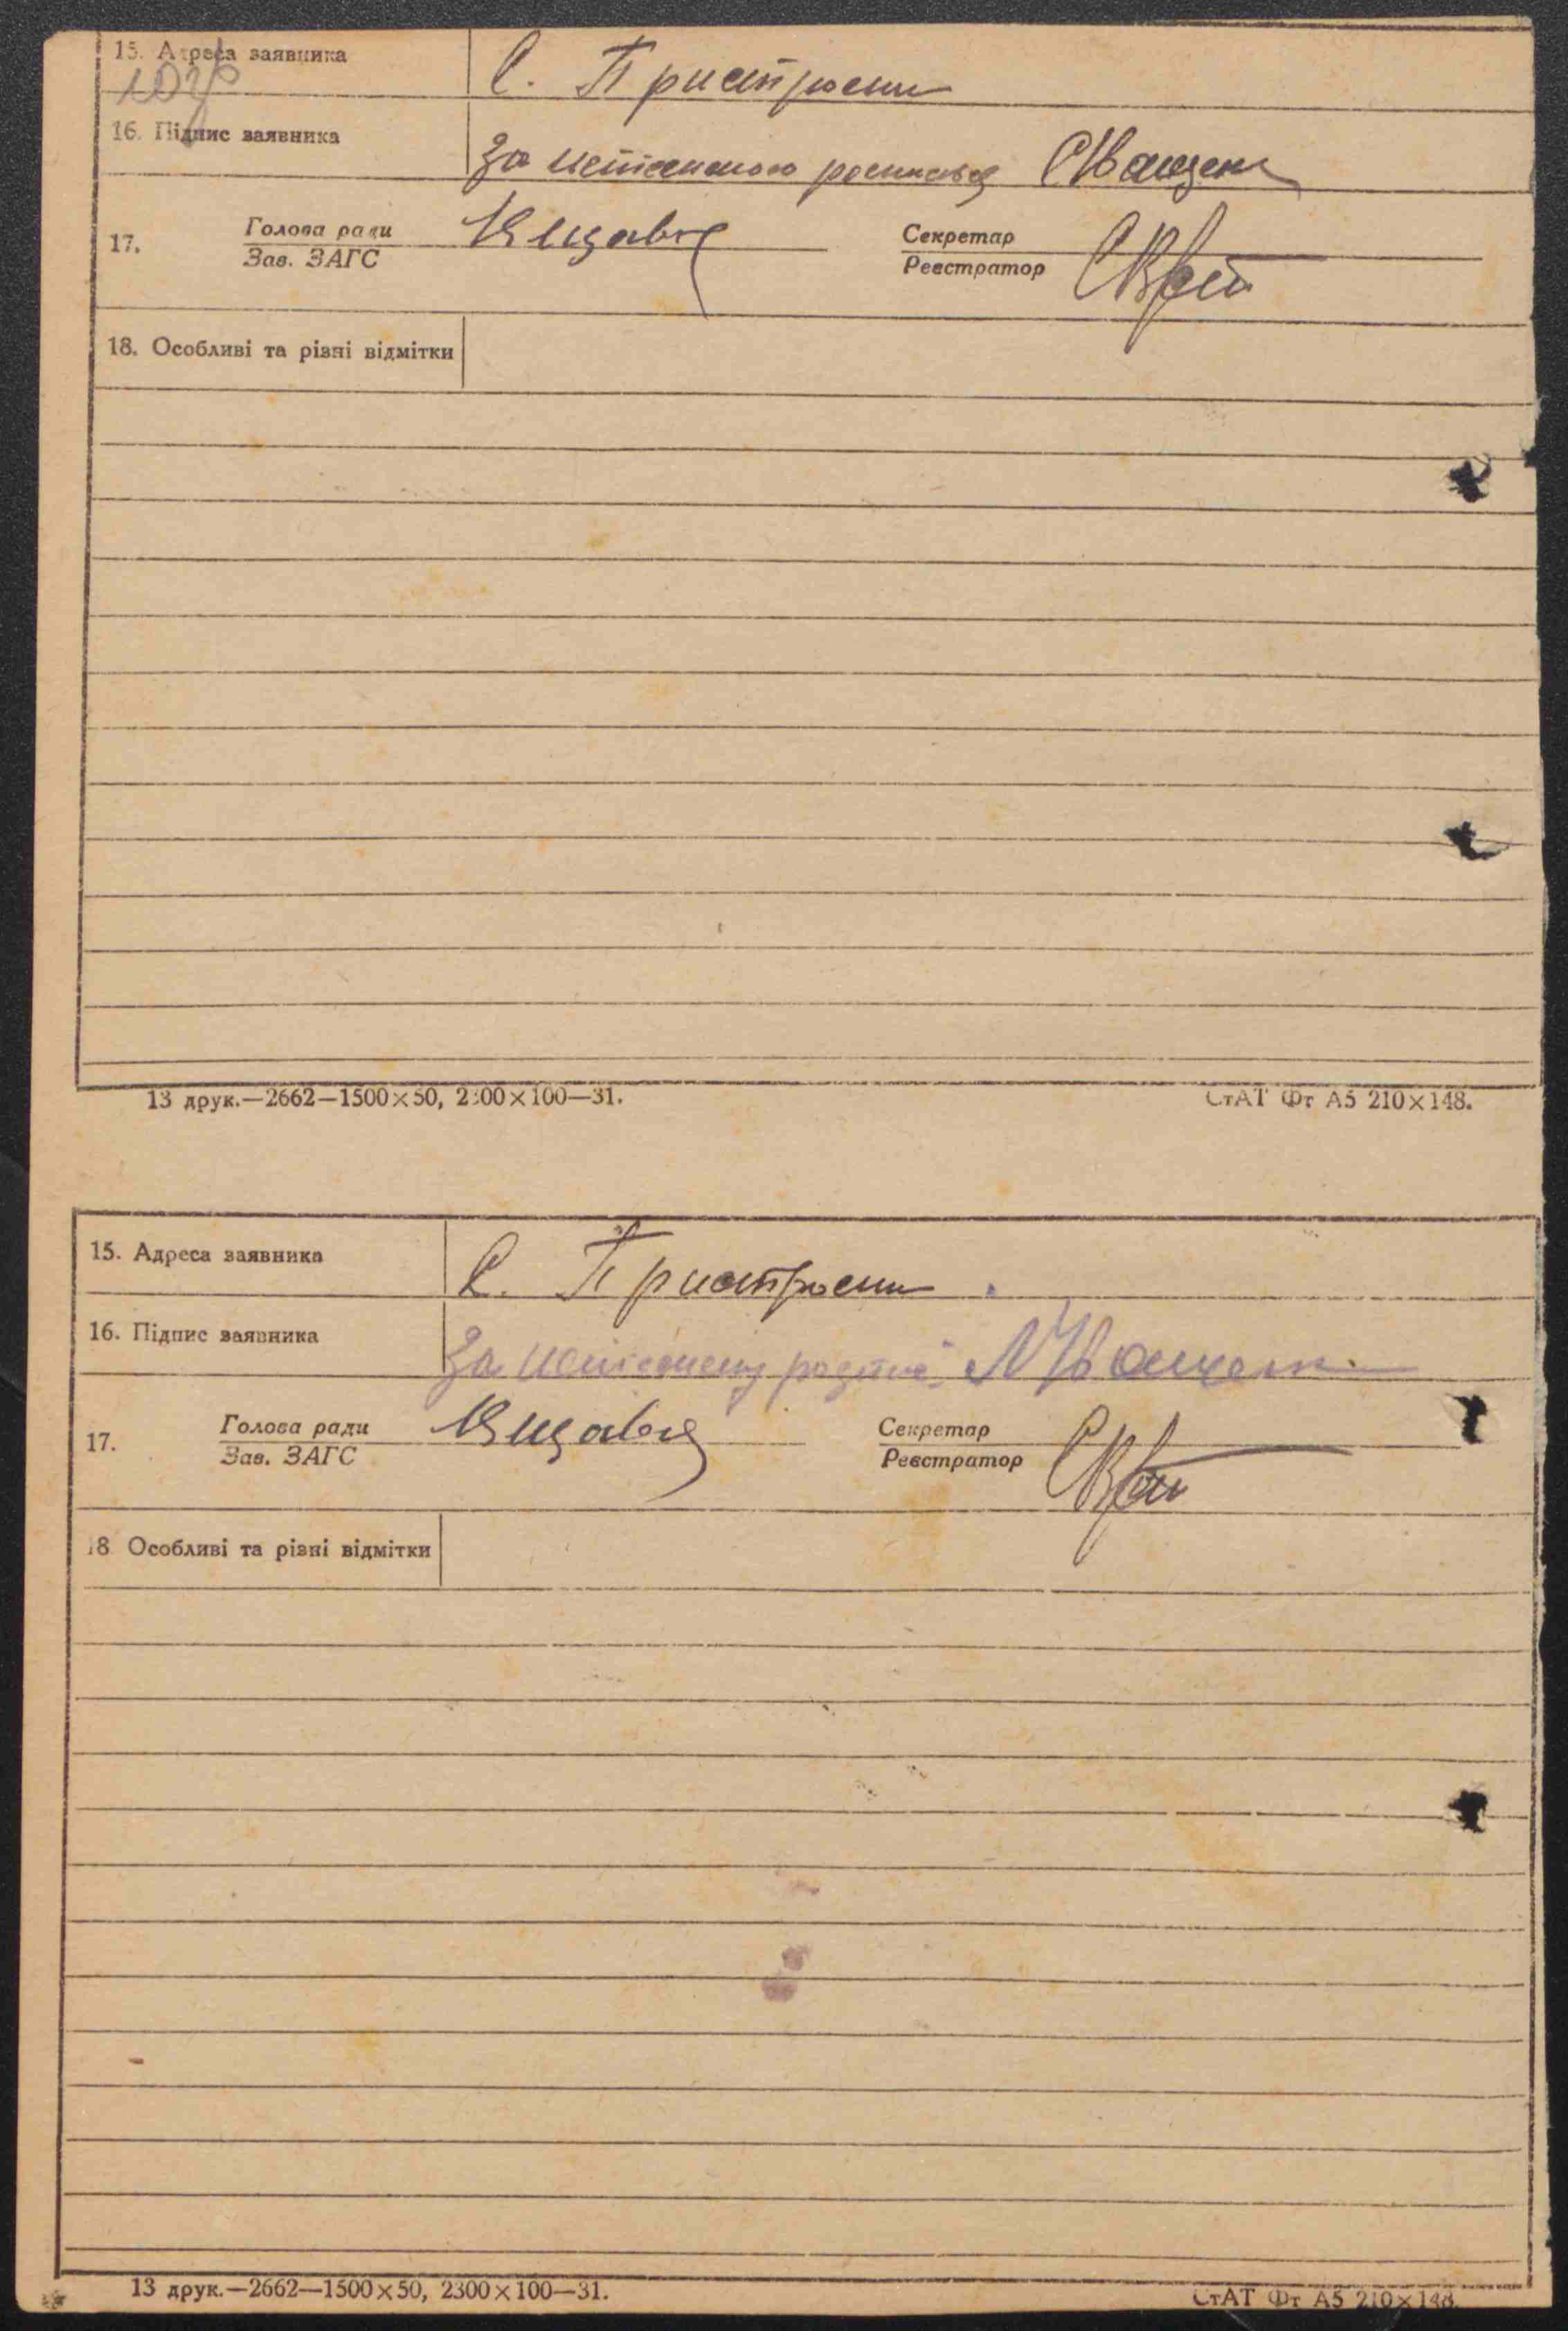 15. Адреса заявника С. Пристроми
107
16. Підпис заявника За С Іващенк
17. Голова ради Секретар
Зав. ЗАГС Реєстратор
18. Особливі та різні відмітки
13 друк.—2662—1500×50, 2300×100—31. СтАТ Фт А5 210×148.
15. Адреса заявника С. Пристроми
16. Підпис заявника За Іващенк
17. Голова ради Секретар
Зав. ЗАГС Реєстратор
18 Особливі та різні відмітки
13 друк.—2662—1500×50, 2300×100—31. СтАТ Фт А5 210×148.